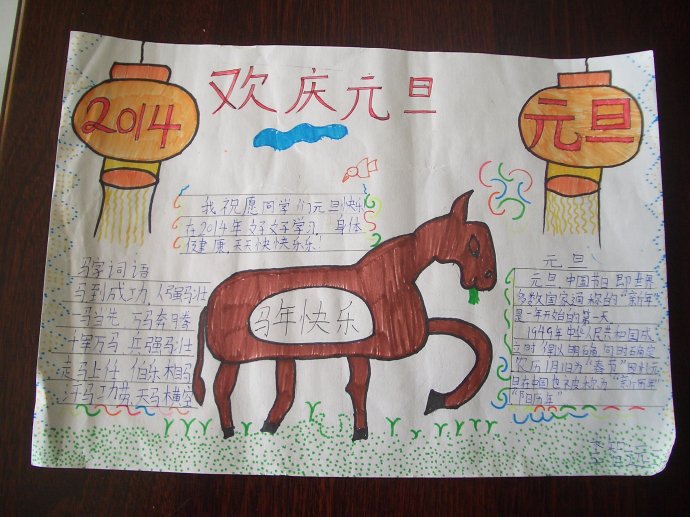 2014
欢庆元旦
元旦
我祝愿同学们元旦快乐
在2014年好好学习,身体
健康,天天快快乐乐!
马字词语
马到成功,人强马壮
一马当先 万马奔腾
千军万马 兵强马壮
走马上任 伯乐相马
汗马功劳,天马横空
马年快乐
元旦
元旦,中国节日 即世界
多数国家通称的“新年”
是一年开始的第一天
1949年中华人民共和国成
立时 得以明确 同时确定
农历1月1日为“春节”因此元
旦在中国也被称为“新历年”
“阳历年”